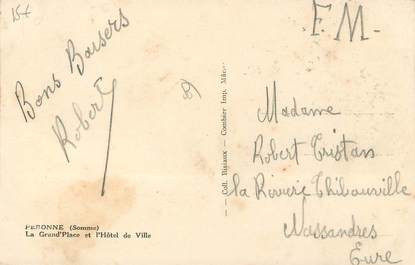 15€
F.M.
Bons Baisers
Robert
Madame
Robert Tristan
la Rivière Thibouville
Nassandres
Eure
Coll. Bigaux - Combier Imp. Mâcon
PERONNE (Somme)
La Grand'Place et l'Hôtel de Ville